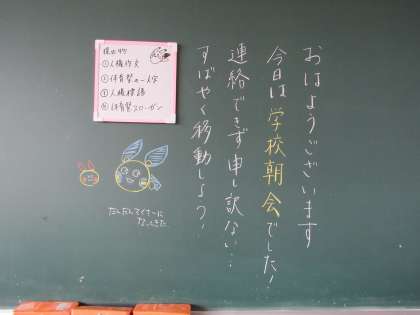 おはようございます
今日は学校朝会でした!
連絡できず申し訳ない…
すばやく移動しよう!
提出物
①人権作文
②体育祭の一文字
③人権標語
④体育祭スローガン
なってきた